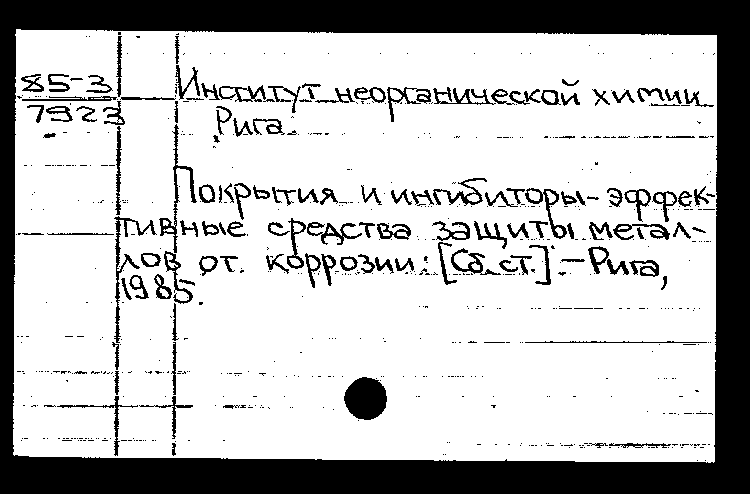 85-3
7923
Институт неорганической химии
Рига.
Покрытия и ингибиторы - эффек-
тивные средства защиты метал-
лов от коррозии: [Сб. ст.]. - Рига,
1985.